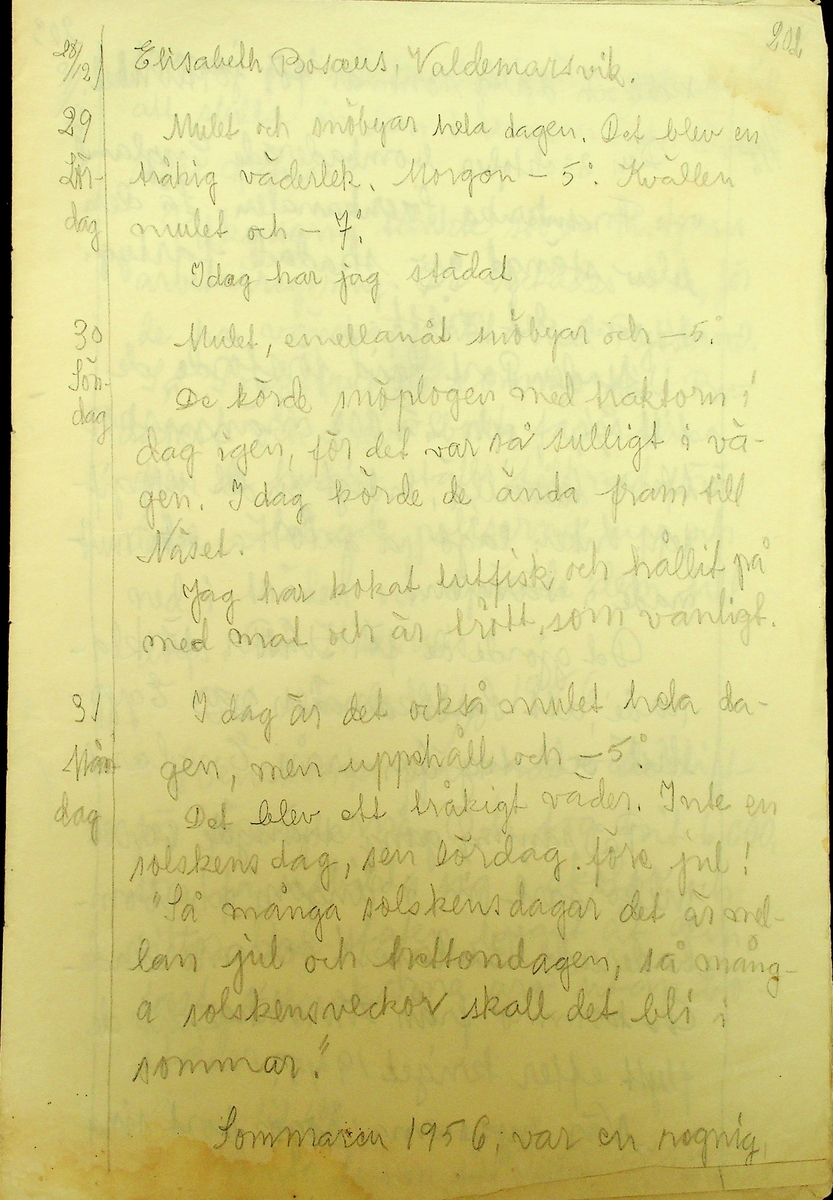 202
28/12 Elisabeth Bosæus, Valdemarsvik.
29 Mulet och snöbyar hela dagen. Det blev en
Lör- tråkig väderlek. Morgon – 5°. Kvällen
dag mulet och – 7°.
Idag har jag städat
30 Mulet, emellanåt snöbyar och – 5°.
Sön-
dag De körde snöplogen med traktorn i
dag igen, för det var så sulligt i vä-
gen. I dag körde de ända fram till
Näset.
Jag har kokat lutfisk och hållit på
med mat och är trött, som vanligt.
31 I dag är det också mulet hela da-
Mån- gen, men uppehåll och – 5°.
dag Det blev ett tråkigt väder. Inte en
solskensdag, sen lördag före jul!
"Så många solskensdagar det är mel-
lan jul och trettondagen, så mång-
a solskensveckor skall det bli i
sommar."
Sommaren 1956, var en regnig